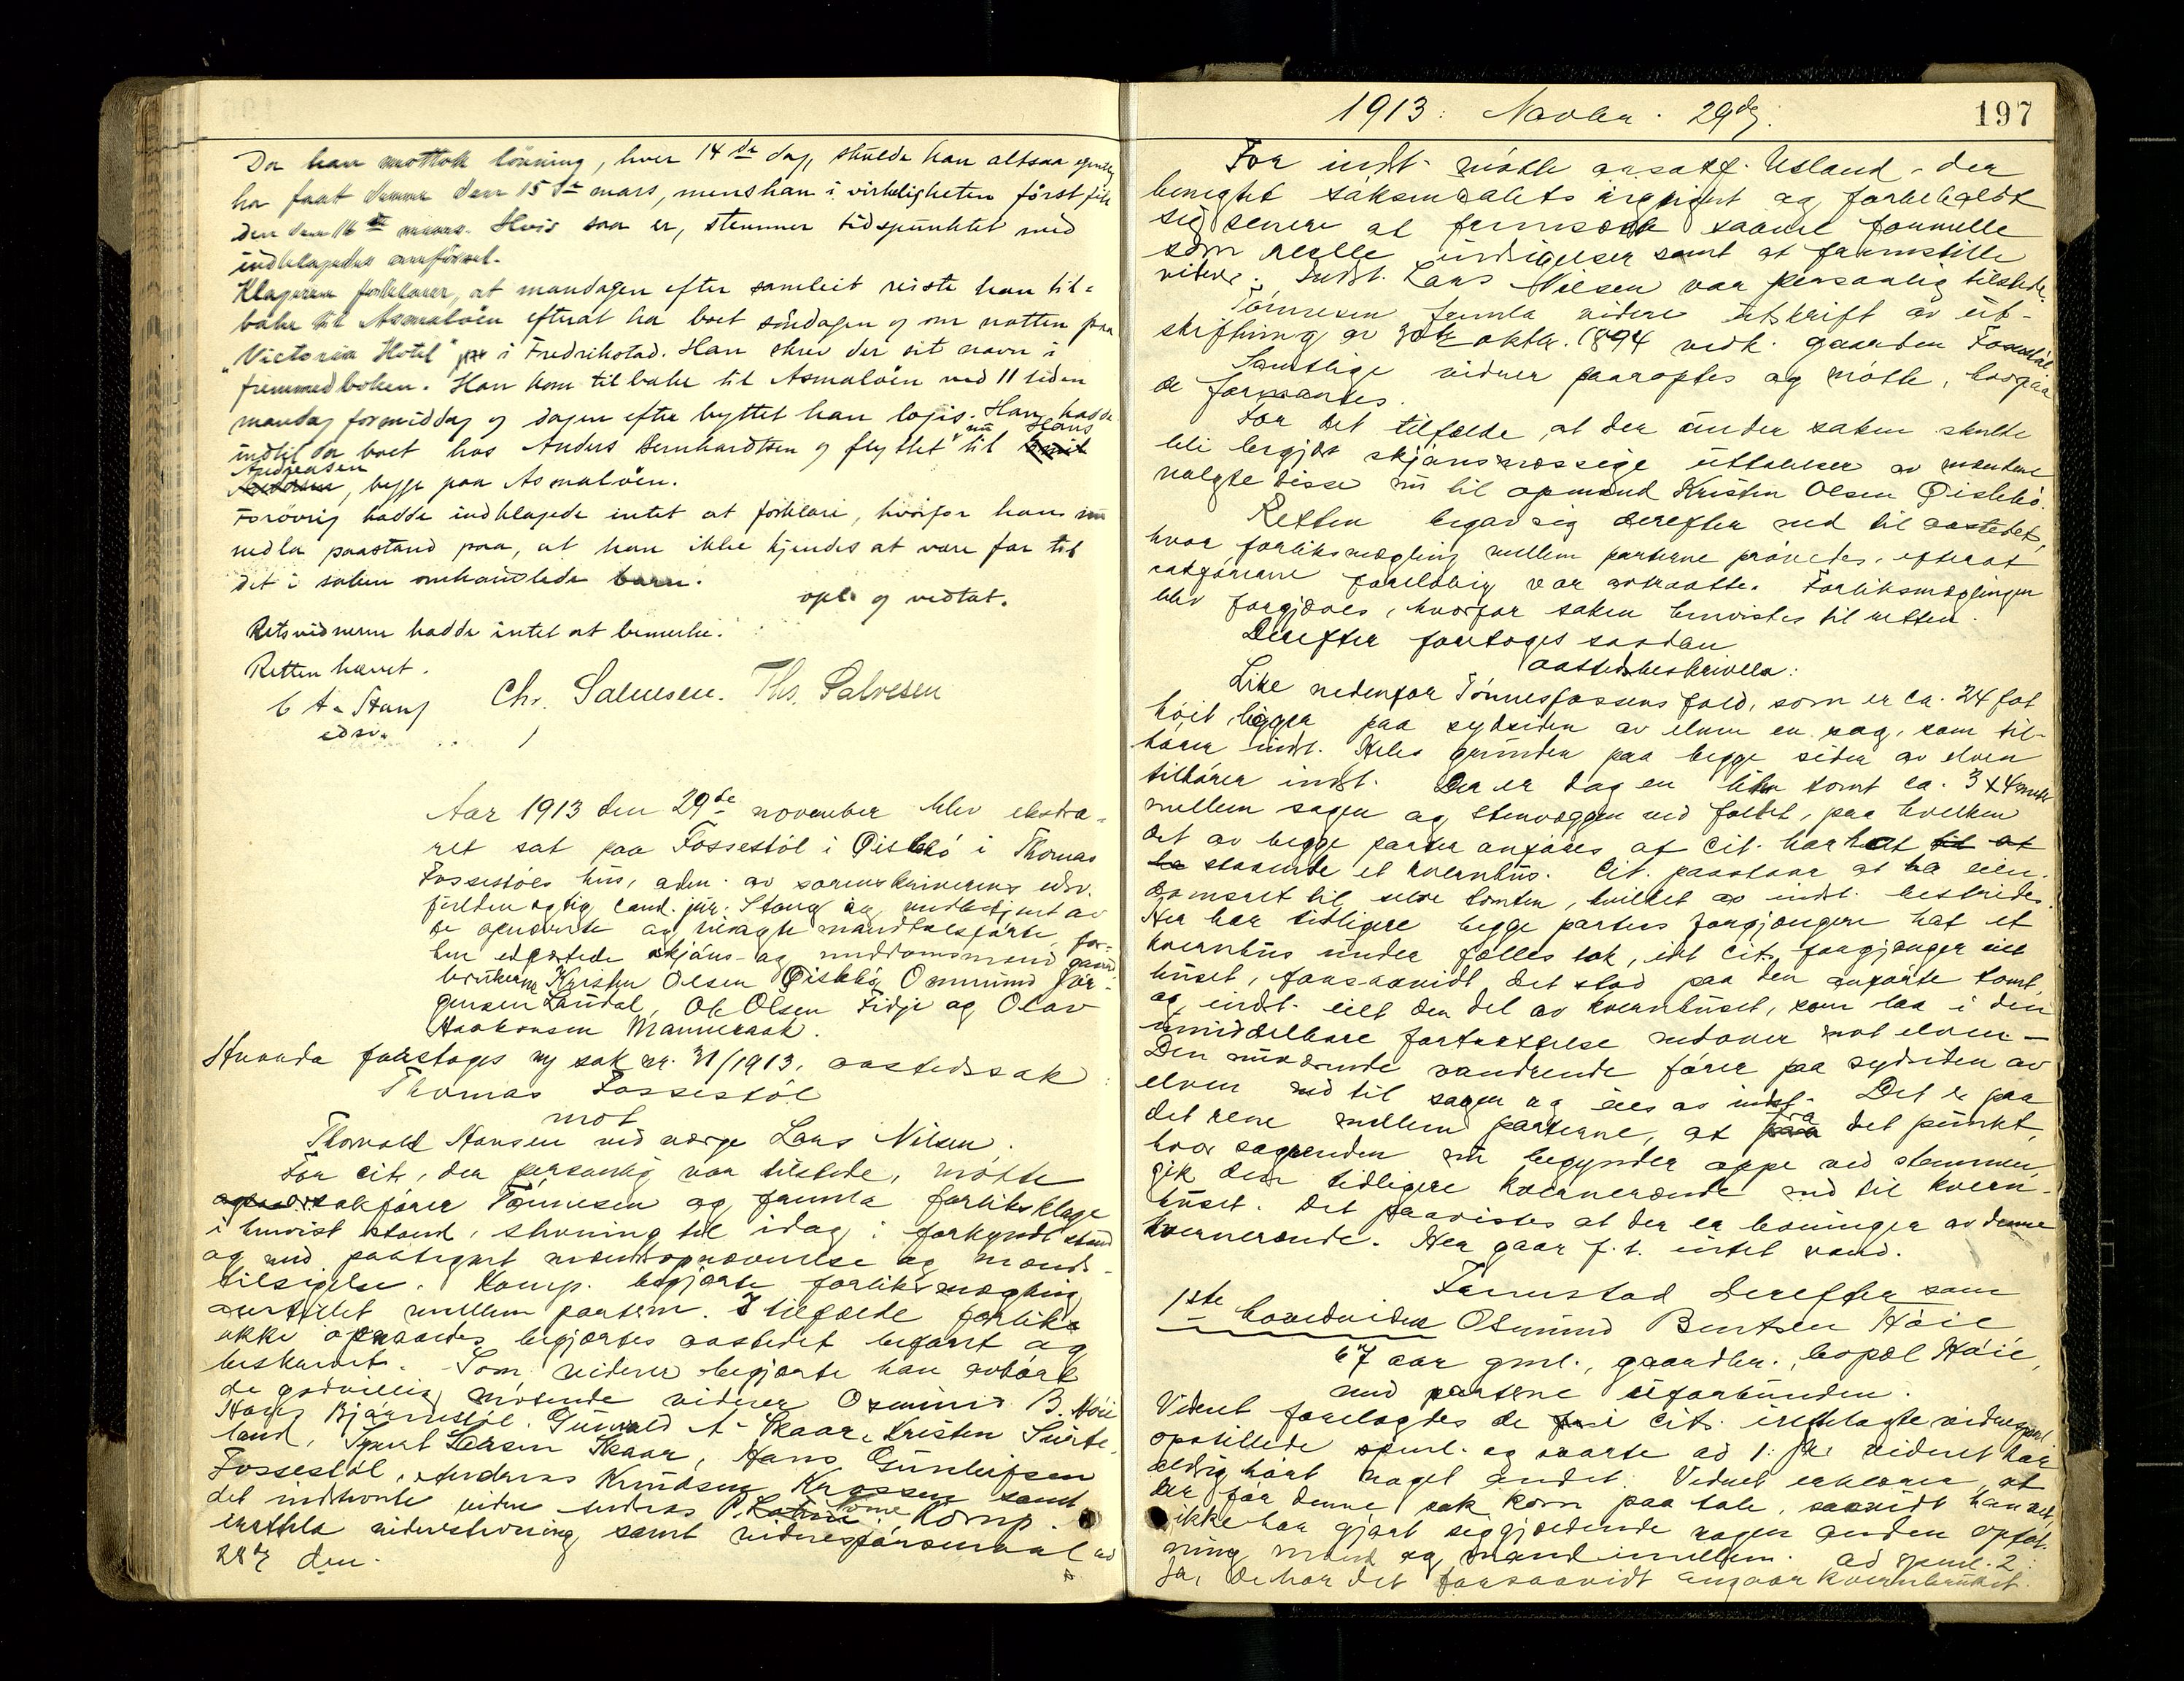 Da han mottok lönning, hver 14de dag, skulde han altsaa egentlig
ha faat denne den 15de mars, mens han i virkeligheten först fik
den den 16de mars. Hvis saa er, stemmer tidspunktet med
indklagedes anförsel.
Klageren forklarer, at mandagen efter samleiet reiste han til-
bake til Asmalöen efterat ha boet söndagen og om natten paa
"Victoria Hotel" i Fredrikstad. Han skrev der sit navn i
fremmedboken. Han kom tilbake til Asmalöen ved 11 tiden
mandag formiddag og dagen efter byttet han logis. Han hadde
indtil da boet hos Anders Bernhardtsen og flyttet nu til Hans
Andreasen, begge paa Asmalöen.
Forövrig hadde indklagede intet at forklare, hvorfor han nu
nedla paastand paa, at han ikke kjendes at være far til
det i saken omhandlede barn.
opl. og vedtat.
Retsvidnerne hadde intet at bemerke.
Retten hævet.
C A Stang Chr. Salvesen. Ths. Salvesen
edsv.
Aar 1913 den 29de november blev ekstra-
ret sat paa Fossestöl i Öislebö i Thomas
Fossestöls hus, adm. av sorenskriverens edsv.
fuldmægtig cand. jur. Stang og medbetjent av
de opnævnte og i mandtalsförte, for-
hen edfæstede skjöns- og meddomsmænd gaard-
brukerne Kristen Olsen Öislebö, Ommund Jör-
gensen Laudal, Ole Olsen Fidje og Olav
Haakonsen Manneraak.
Hvorda foretoges ny sak nr. 31/1913, aastedssak:
Thomas Fossestöl
mot
Thorvald Hansen ved værge Lars Nilsen.
For cit., der personlig var tilstede, mötte
saksförer Tönnesen og fremla forliksklage
i henvist stand, stevning til idag i forkyndt stand
og med paategnet mandsopnævnelse og mands-
tilsigelse. Komp. begjærte forliksmægling
anstillet mellem parterne. I tilfælde forlik
ikke opnaaedes begjærtes aastedet befaret og
beskrevet. Som vidner begjærte han avhört
de godvillig mötende vidner Osmund B. Höie
Hans Björnestöl, Gunvald A. Skaar, Kristen Surte-
land, Syvert Larsen Skaar, Hans Gunleifsen
Fossestöl, Anders Knudsen Krossen samt
det indstevnte vidne Andreas P. Lome. Komp.
fremla vidnestevning samt vidnespörsmaal ad
28de dm.
1913: Novbr. 29de.
197
For indst. mötte orsakf. Usland, der
benegtet søksmaalets rigtighet og forbeholdt
sig senere at fremsætte saavel formelle
som reelle indsigelser samt at fremstille
vidner. Indst. Lars Nilsen var personlig tilstede.
Tönnesen fremla videre utskrift av ut-
skiftning av 30te oktbr. 1894 vedk. gaarden Fossestöl.
Samtlige vidner paaroptes og mötte, hvorpaa
de formantes.
For det tilfælde, at der under saken skulde
bli begjært skjönsmæssige uttalelser av mændene
valgte disse nu til opmand Kristen Olsen Öislebö.
Retten begav sig derefter ned til aastedet,
hvor forliksmægling mellem parterne prövedes, efterat
sakförerne foreløbig var avtraatte. Forliksmæglingen
blev forgjæves, hvorfor saken henvistes til retten.
Derefter foretoges saadan
aastedsbeskrivelse:
Like nedenfor Tönnesfossens fald, som er ca. 24 fot
höit, ligger paa sydsiden av elven en sag, som til-
hörer indst. Hele grunden paa begge sider av elven
tilhörer indst. Der er dog en liten tomt ca. 3 x 4 meter
mellem sagen og stenvæggen ved faldet, paa hvilken
det av begge parter anföres at cit. har hat
staaende et kvernhus. Cit. paastaar at ha eien-
domsret til selve tomten, hvilket av indst. bestrides.
Her har tidligere begge parters forgjængere hat et
kvernhus under fælles tak, idet cits forgjænger eiet
huset, forsaavidt det stod paa den anförte tomt,
og indst. eiet den del av kvernhuset, som laa i den
umiddelbare fortsættelse nedover mot elven. –
Den nuværende vandrende förer paa sydsiden av
elven ned til sagen og eies av indst. Det er paa
det rene mellem parterne, at fra det punkt,
hvor sagrenden nu begynder oppe ved stemmen,
gik den tidligere kvernerende ned til kvern-
huset. Det paavistes at der er levninger av denne
kvernerende. Her gaar f. t. intet vand.
Fremstod derefter som
1ste hovedvidne Osmund Berntsen Höie
67 aar gml., gaardbr., bopæl Höie,
med parterne uforbunden.
Vidnet forelagdes de i cits. fremlagte vidnespml
opstillede spml. og svarte ad 1: Ja. Vidnet har
aldrig hört noget andet. Vidnet erklærer, at
der för denne sak kom paa tale, saavidt han vet,
ikke har gjort sig gjældende nogen anden opfat-
ning mand og mand imellem. Ad spml. 2:
Ja, de har det forsaavidt angaar kvernbruket.